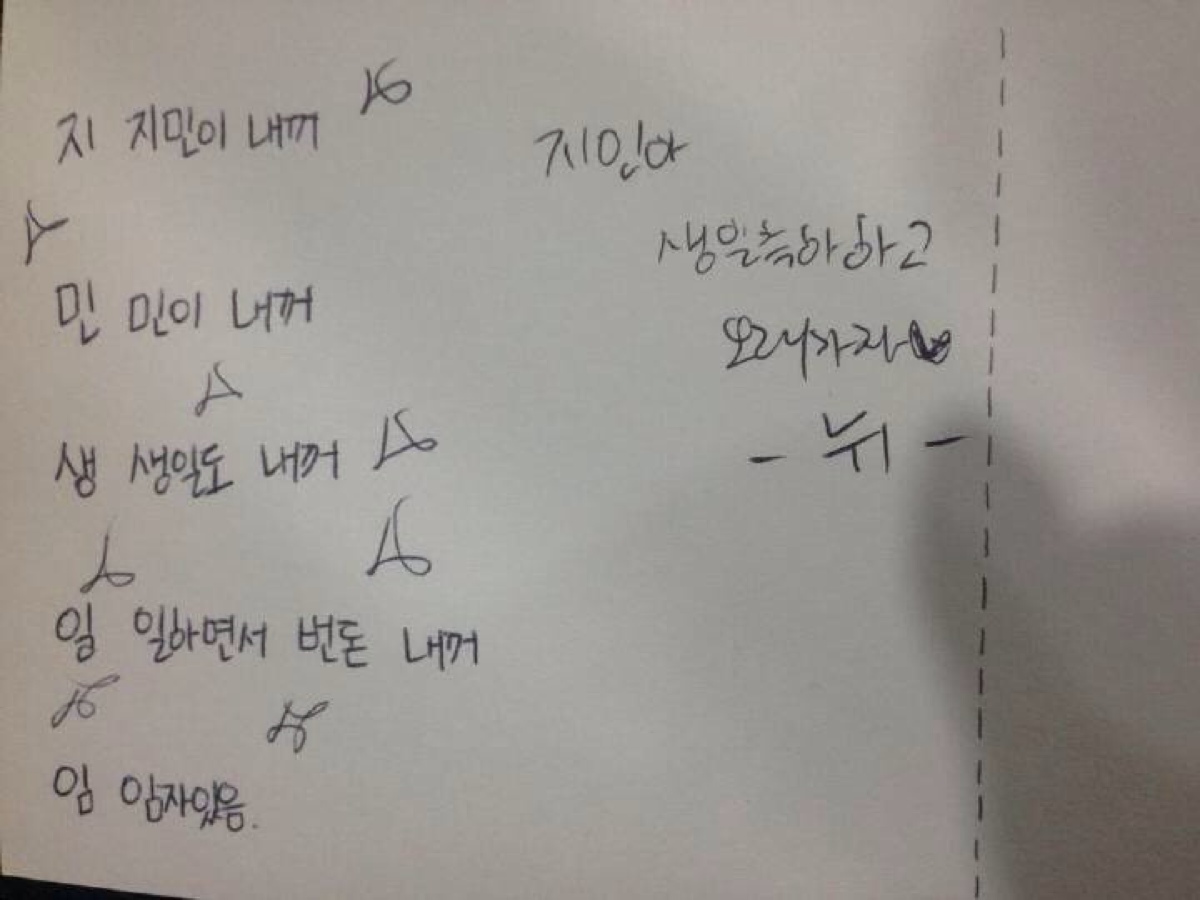 지 지민이 내꺼
민 민이 내꺼
생 생일도 내꺼
일 일하면서 번돈 내꺼
임 임자있음.
지민아
생일축하하고
오래가자♥
- 뉘 -